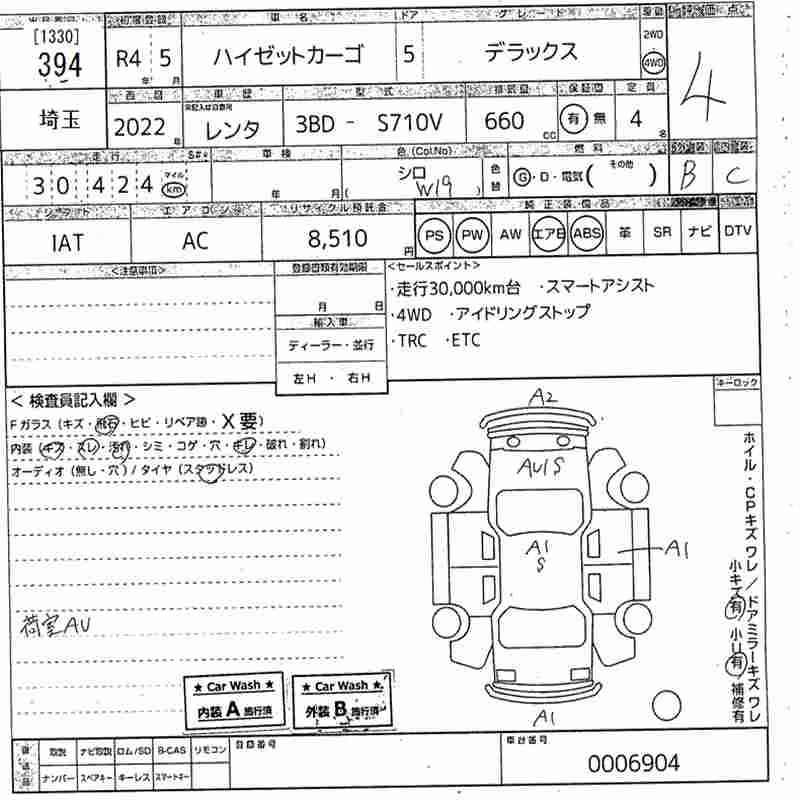 [1330] 初度登録 車名 ドア グレード 評価点
394 R4 年 5 月 ハイゼットカーゴ 5 デラックス 2WD 4WD 4
埼玉 2022 年 車歴 レンタ 型式 3BD - S710V 排気量 660 cc 有 無 定員 4 名
走行 車検 色(Col.No) 燃料 外装 内装
30,424 マイル km 年 月 ( シロ W19 ) 色替 G・D・電気( その他 ) B C
シフト エアコン リサイクル預託金 純正装備品
IAT AC 8,510 円 PS PW AW エアB ABS 革 SR ナビ DTV
<注意事項> 登録書類有効期限 <セールスポイント>
月 日 ・走行30,000km台 ・スマートアシスト
輸入車 ・4WD ・アイドリングストップ
ディーラー・並行 ・TRC ・ETC
左H ・ 右H
キーロック
< 検査員記入欄 >
Fガラス (キズ・飛石・ヒビ・リペア跡・X要)
内装 (キズ・スレ・汚れ・シミ・コゲ・穴・キレ・破れ・割れ)
オーディオ (無し・穴) / タイヤ (スタッドレス)
荷室AU
A2
AU1S
A1
S
A1
A1
ホイル・CPキズワレ/ドアミラーキズワレ
小キズ有 小U有 補修有
★ Car Wash ★
内装 A 施行済
★ Car Wash ★
外装 B 施行済
取説 ナビ取説 ロム/SD B-CAS リモコン 登録番号 車台番号
ナンバー スペアキー キーレス スマートキー 0006904